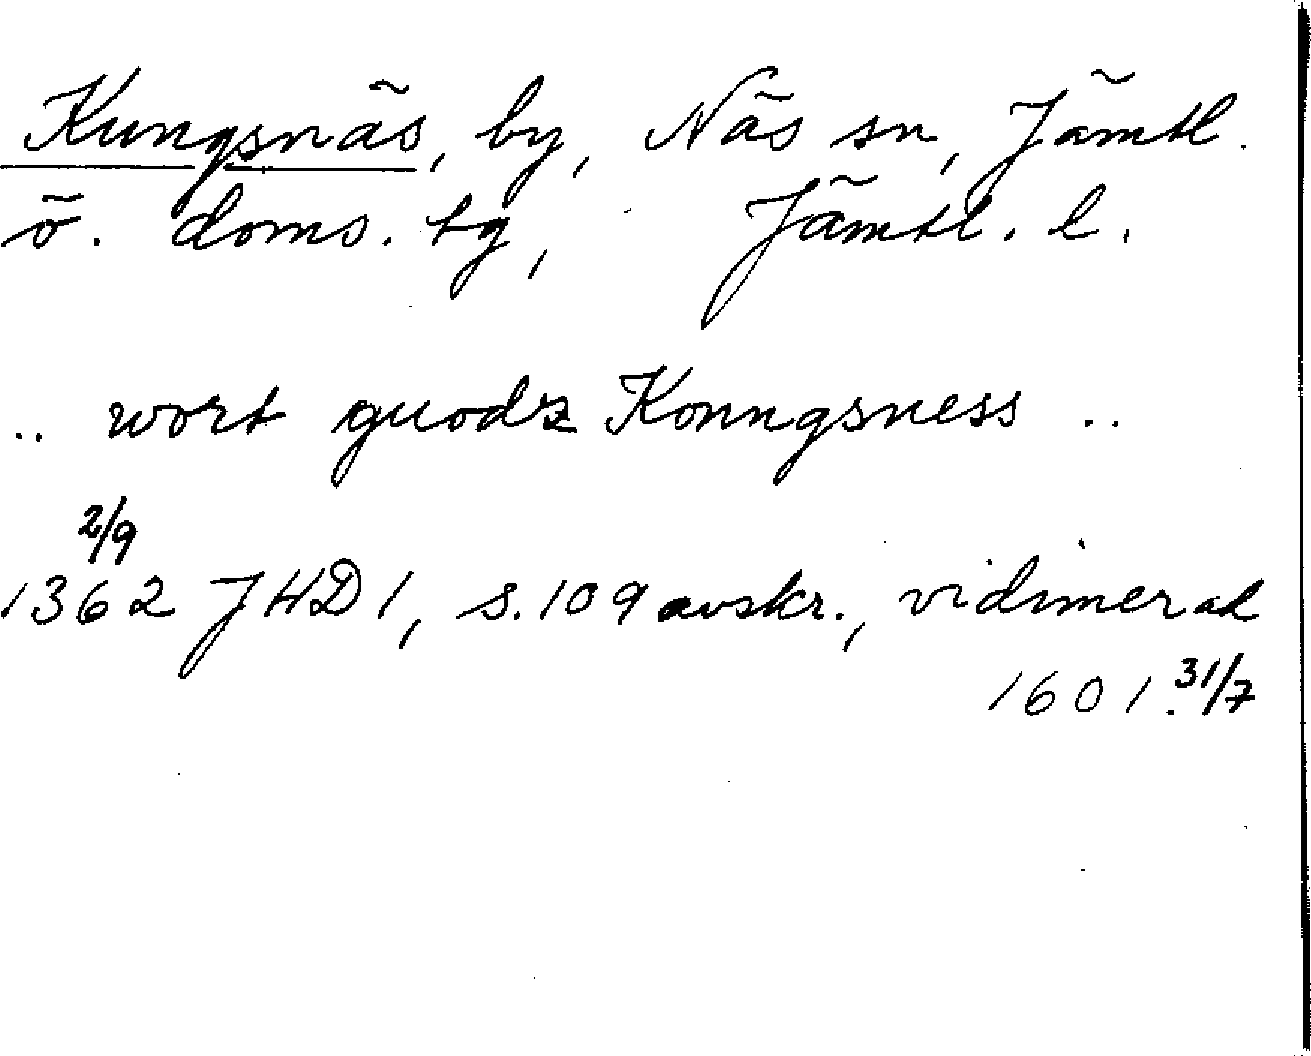 Kungsnäs, by, Näs sn, Jämtl.
ö. doms. tg, Jämtl. l.
.. wort guodz Konngsness ..
2/9
1362 JHD 1, s. 109 avskr., vidimerad
1601. 31/7